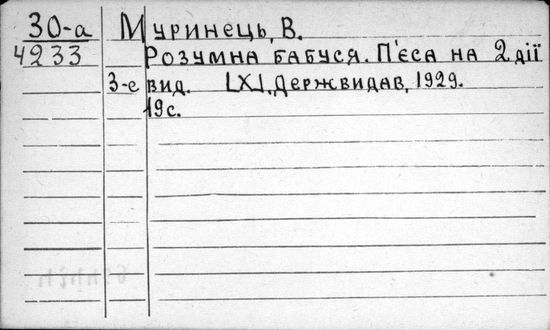 30-а Муринець, В.
4233 Розумна бабуся. П'єса на 2 дії
3-е вид. [Х], Держвидав, 1929.
19с.